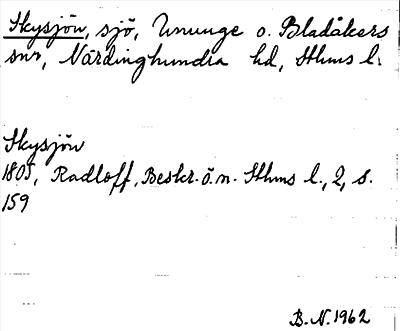 Skysjön, sjö, Ununge o. Bladåkers
snr, Närdinghundra hd, Sthms l.
Skysjön
1805, Radloff, Beskr. ö. n. Sthms l., 2, s.
159
B. N. 1962